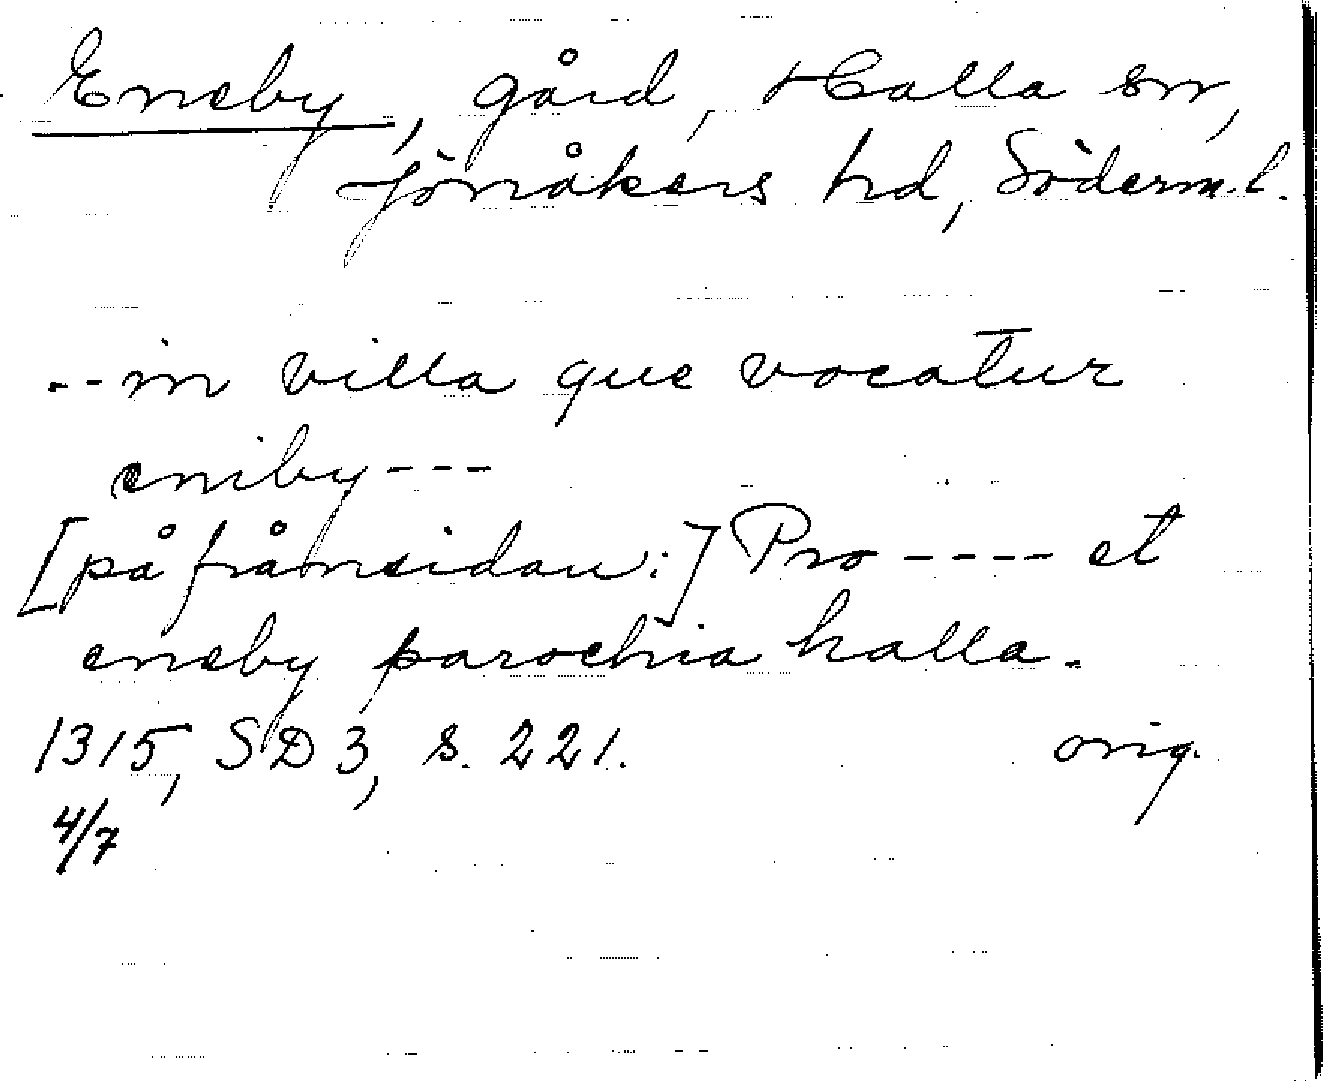 Eneby, gård, Halla sn,
Jönåkers hd, Söderm.l.
--in villa que vocatur
eniby---
[på frånsidan:] Pro ---- et
eneby parochia halla.
1315, SD 3, s. 221. orig.
4/7